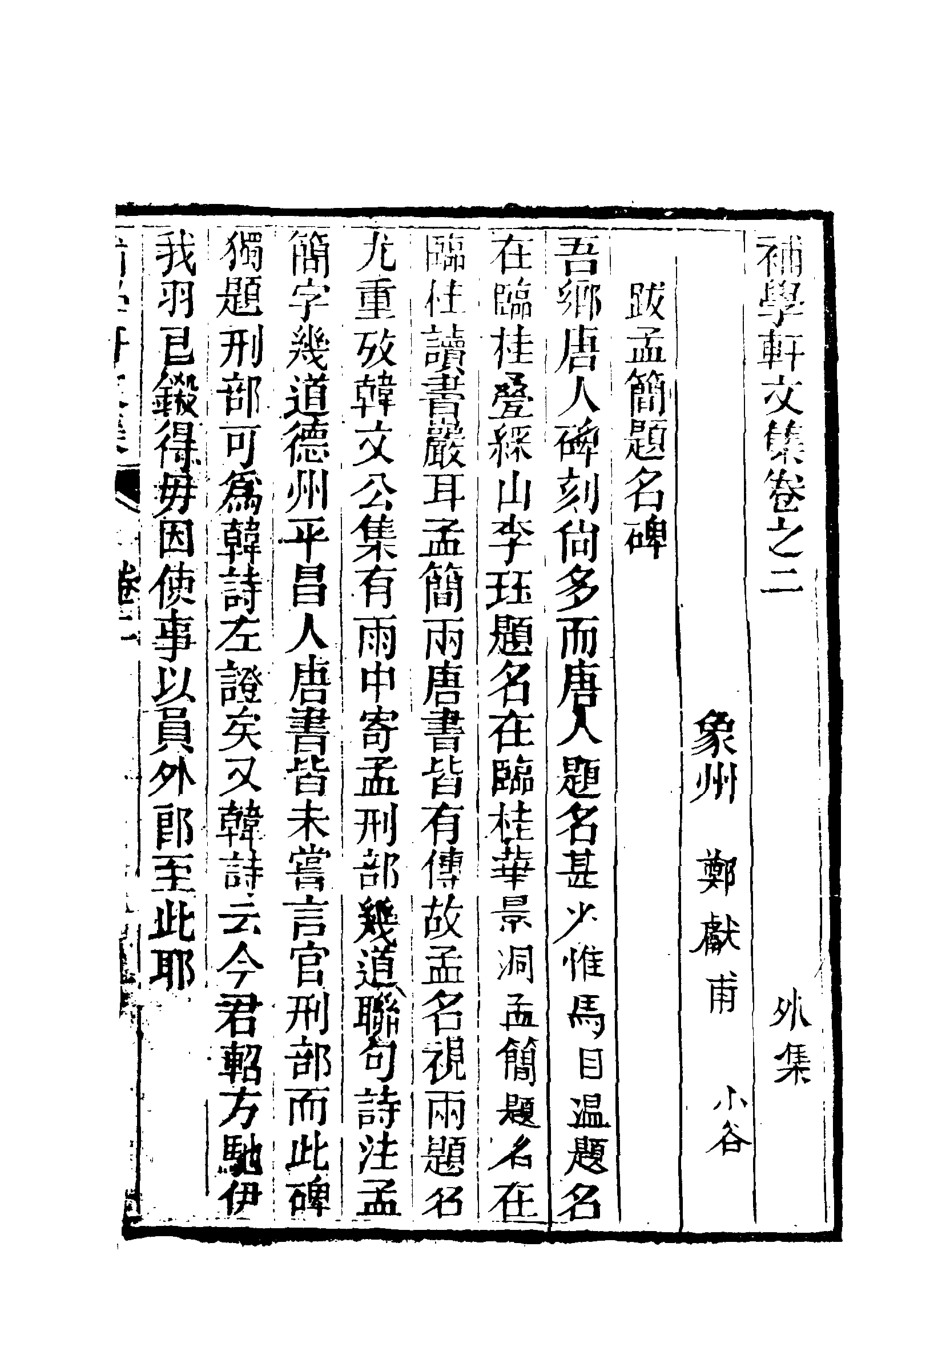 補學軒文集卷之二　外集
象州　鄭獻甫　小谷
跋孟簡題名碑
吾鄉唐人碑刻尙多而唐人題名甚少惟馬目温題名
在臨桂疊綵山李珏題名在臨桂華景洞孟簡題名在
臨桂讀書巖耳孟簡兩唐書皆有傳故孟名視兩題名
尤重攷韓文公集有雨中寄孟刑部幾道聯句詩注孟
簡字幾道德州平昌人唐書皆未嘗言官刑部而此碑
獨題刑部可爲韓詩左證矣又韓詩云今君軺方馳伊
我羽已鎩得毋因使事以員外郎至此耶
卷二